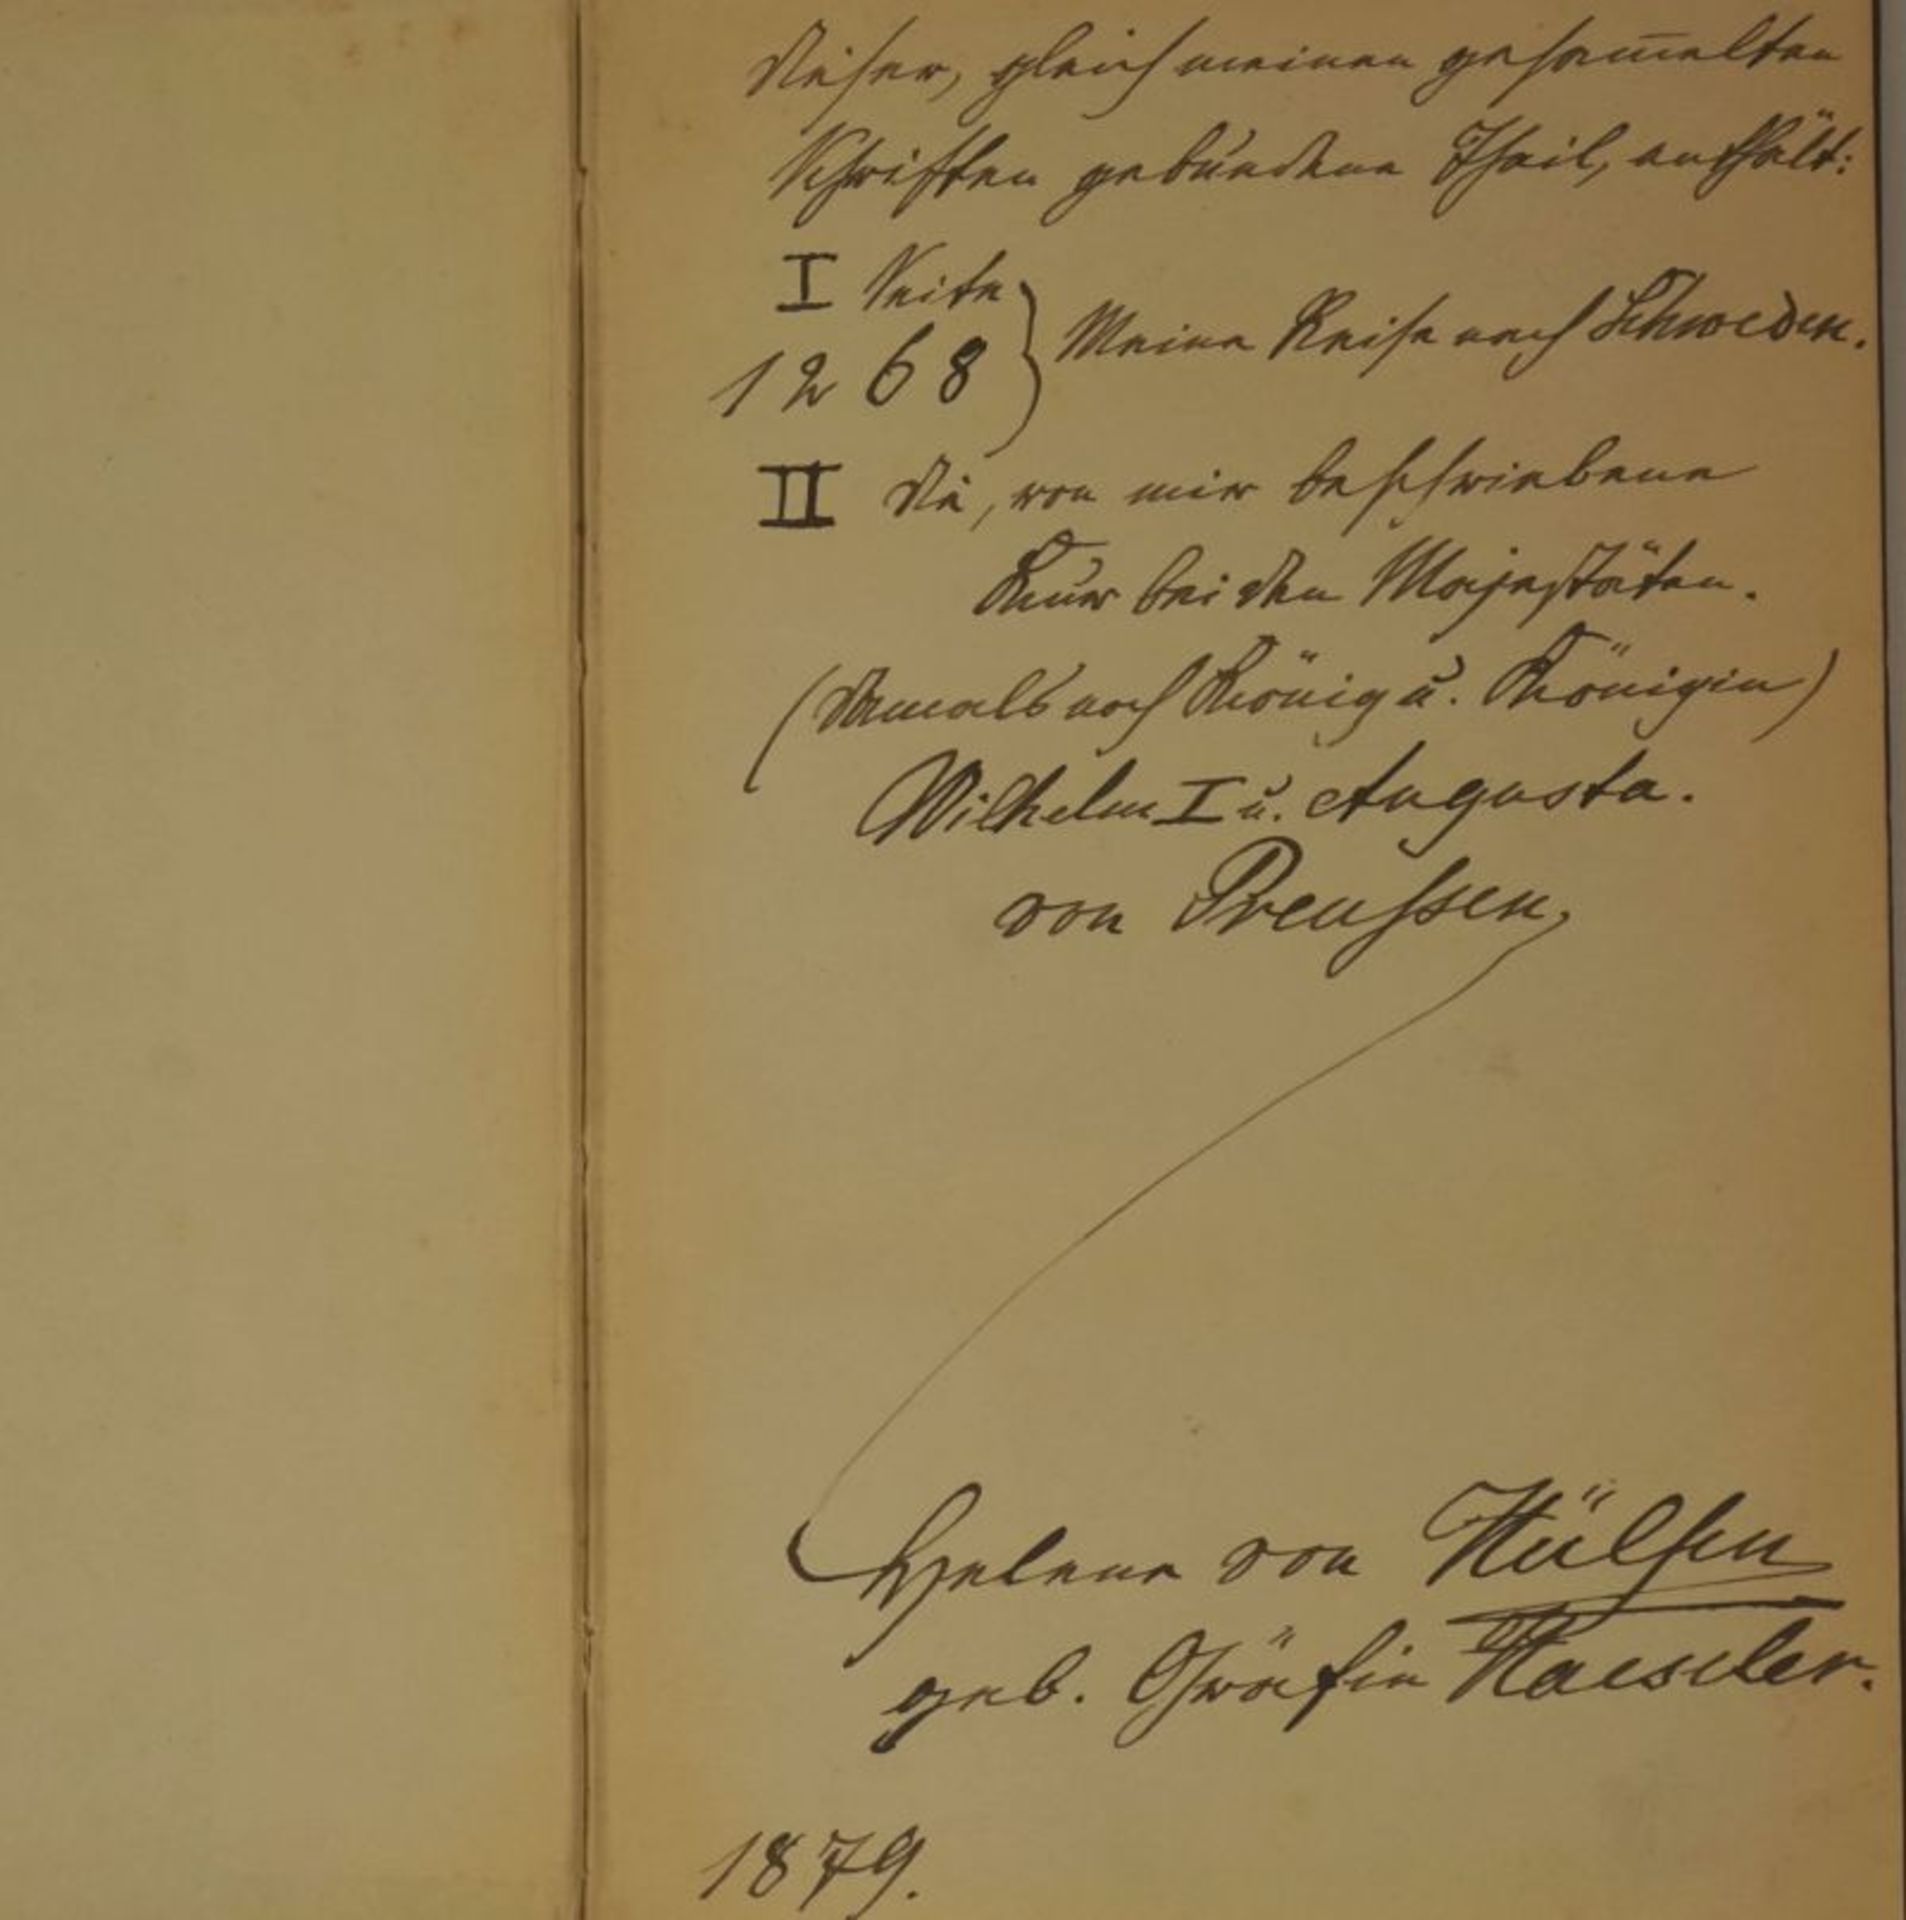 Dieser, gleich meinen gesam̅elten
Schriften gebundene Theil, enthält:
I Seite
1268 } Meine Reise nach Schweden.
II Die, von mir beschriebene
Kur bei den Majestäten.
(damals noch König u. Königin)
Wilhelm I u. Augusta.
von Preussen,
Helene von Hülsen
geb. Gräfin Haeseler.
1879.